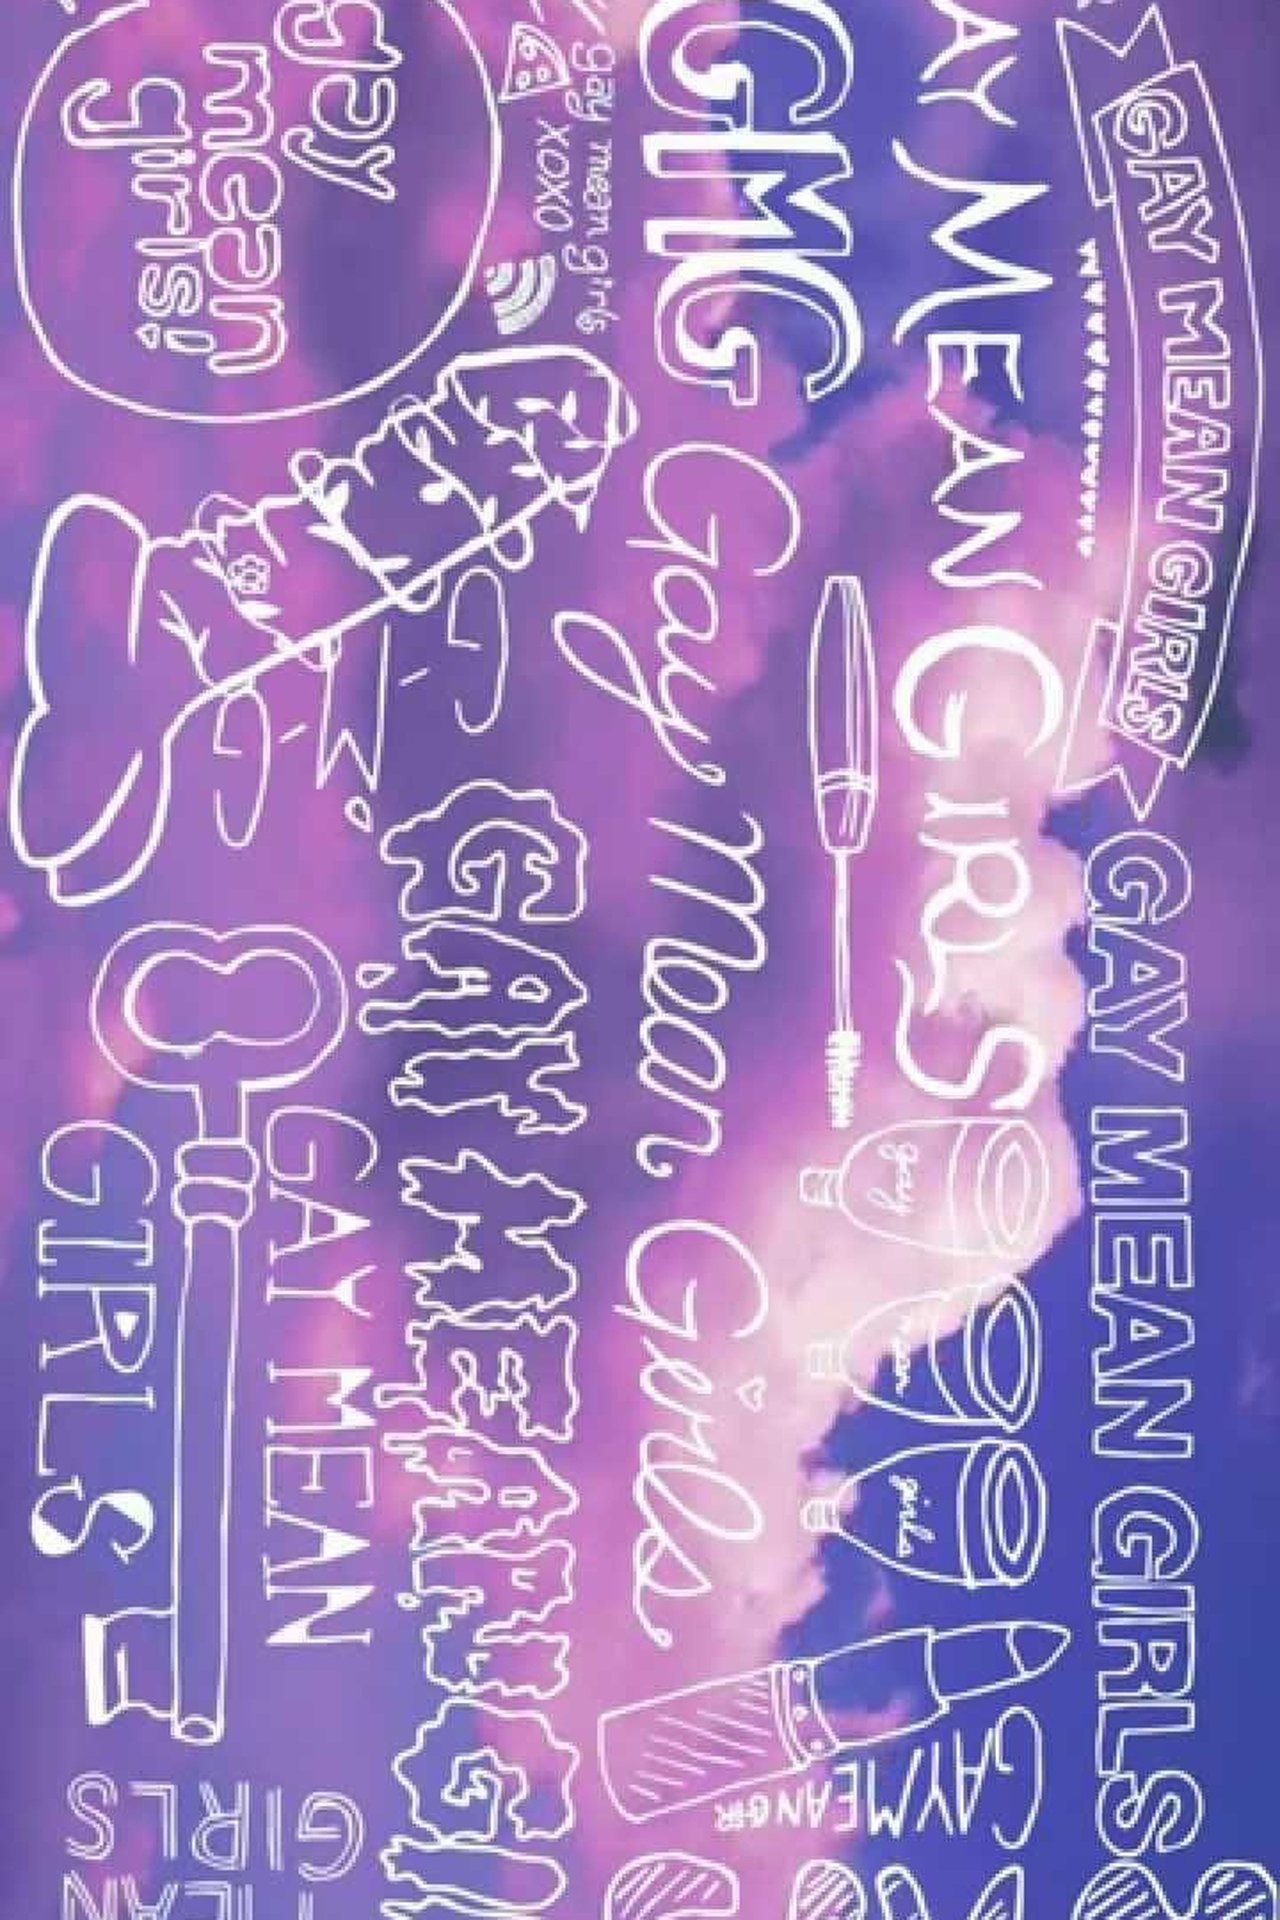 GAY MEAN GIRLS
GAY MEAN GIRLS
AY MEAN GIRLS
gay
girls
GAY MEAN GIR
GMG
Gay Mean Girls
gay mean girls
XOXO
GAY MEAN
G
G
gay
mean
girls!
GAY MEAN
GIRLS
GIRLS